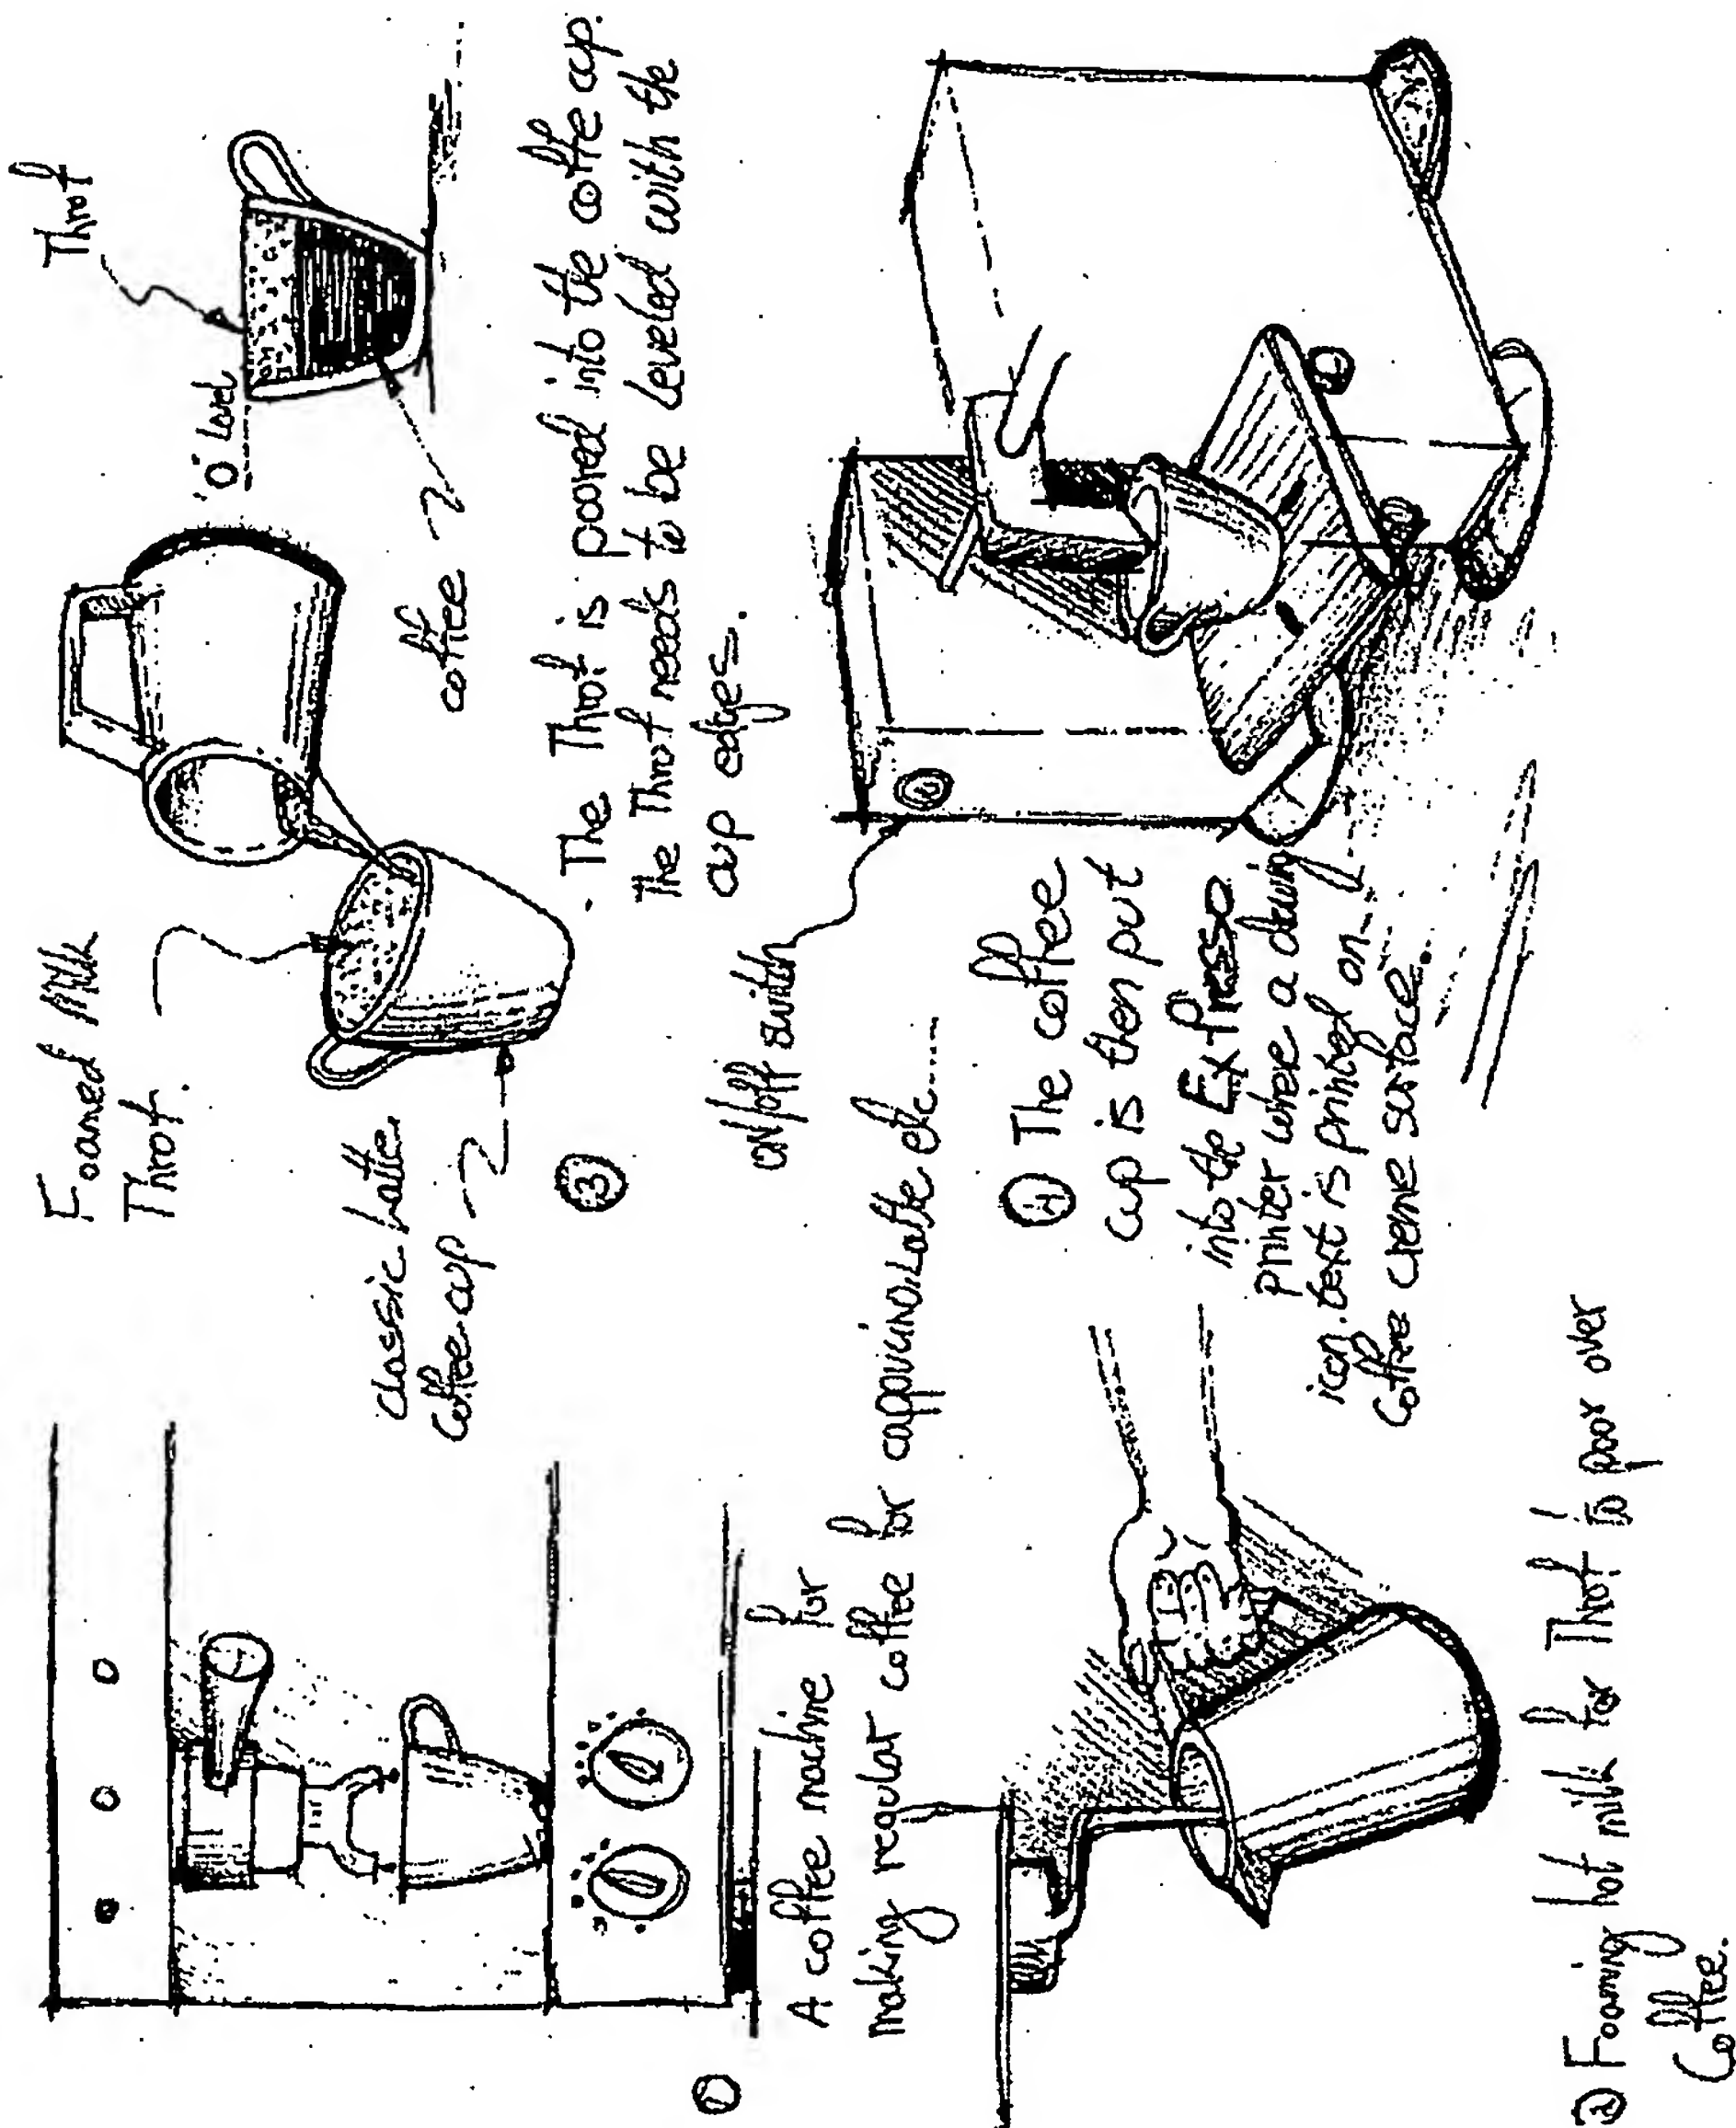 ①
A coffee machine for
making regular coffee for cappucino.Latte etc......
② Foaming hot milk for Throf to poor over
Coffee.
Foamed Milk
Throf.
classic Latte
Coffee cup
③
"0" level
Throf
coffee
. The Throf is poored into the coffe cup.
The Throf needs to be leveled with the
cup edges.
ON/off switch
④ The coffee
cup is then put
into the ExPresso
printer where a drawing
icon. text is printed on
Coffee creme surface.